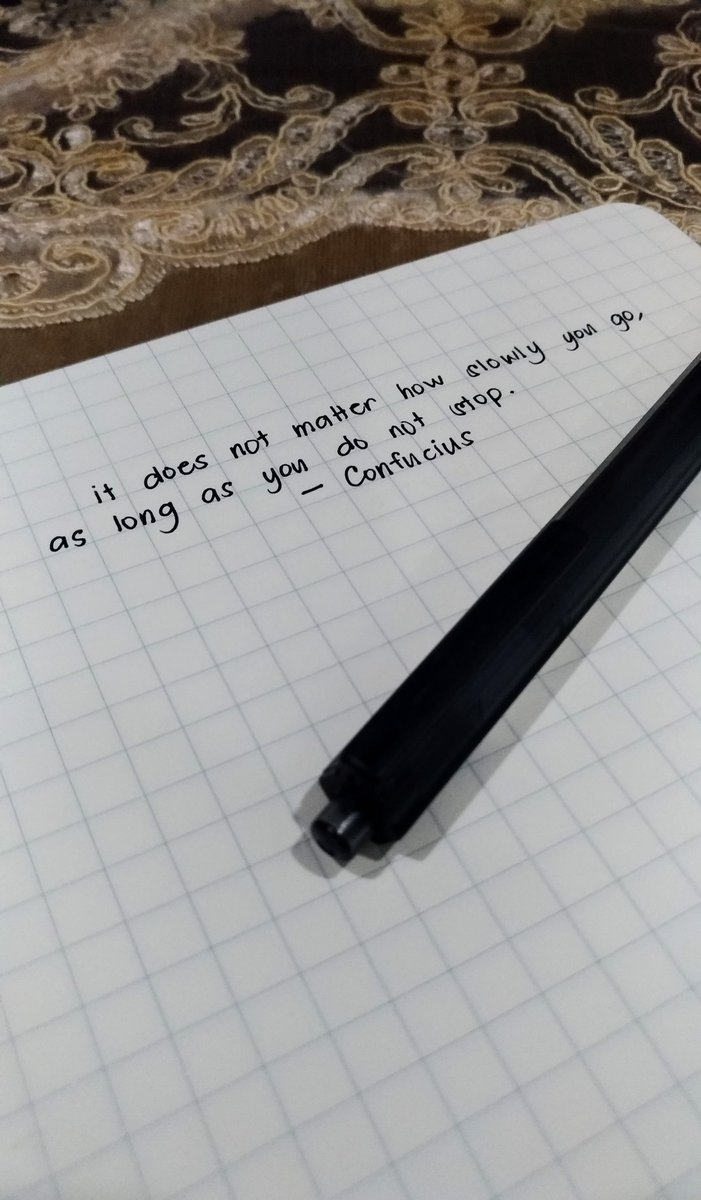 it does not matter how slowly you go,
as long as you do not stop.
— Confucius